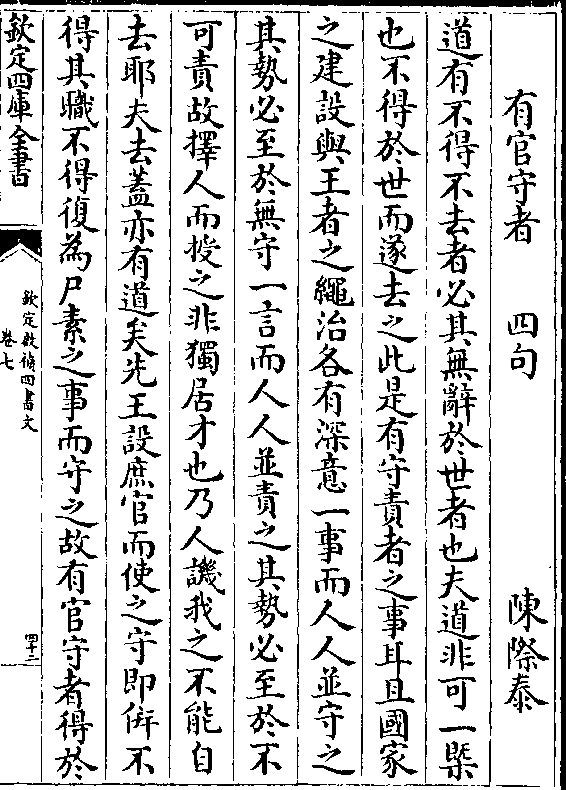 有官守者　四句　陳際泰
道有不得不去者必其無辭於世者也夫道非可一槩
也不得於世而遂去之此是有守責者之事耳且國家
之建設與王者之繩治各有深意一事而人人並守之
其勢必至於無守一言而人人並責之其勢必至於不
可責故擇人而授之非獨居才也乃人譏我之不能自
去耶夫去蓋亦有道矣先王設庶官而使之守即俯不
得其職不得復為尸素之事而守之故有官守者得於
欽定四庫全書
欽定啟禎四書文
卷七
四十二